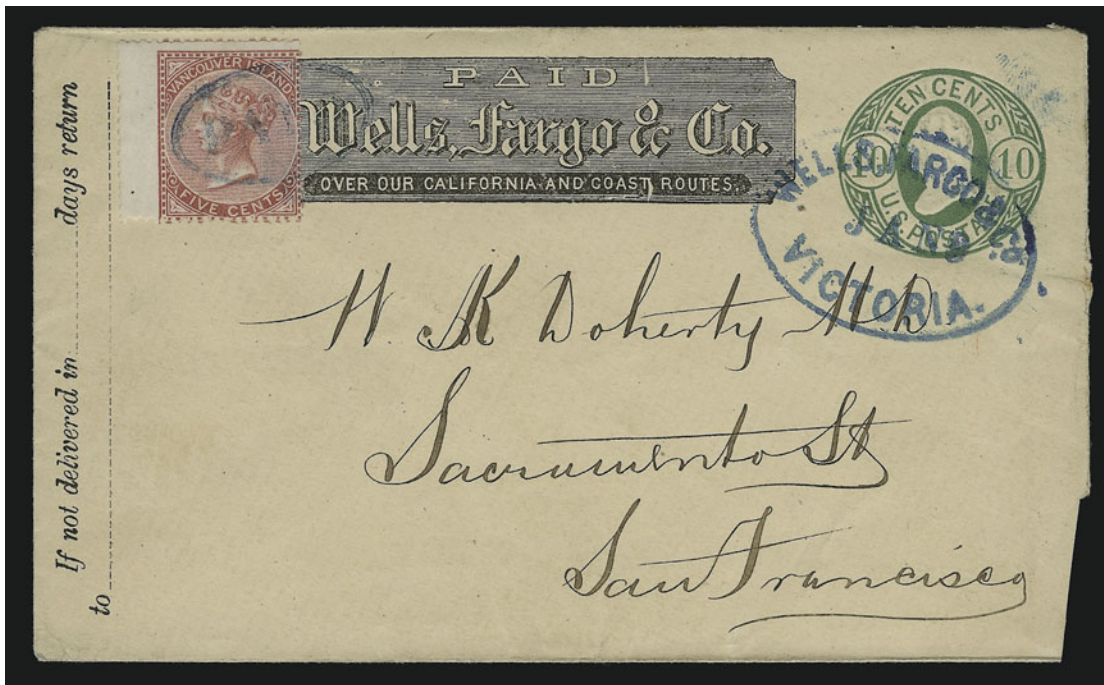 If not delivered in days return
to
VANCOUVER ISLAND
FIVE CENTS
PAID
Wells, Fargo & Co.
OVER OUR CALIFORNIA AND COAST ROUTES.
TEN CENTS
10 10
U.S. POSTAGE
WELLS, FARGO & Co.
JAN 8
VICTORIA.
W. K Doherty M D
Sacramento St
San Francisco